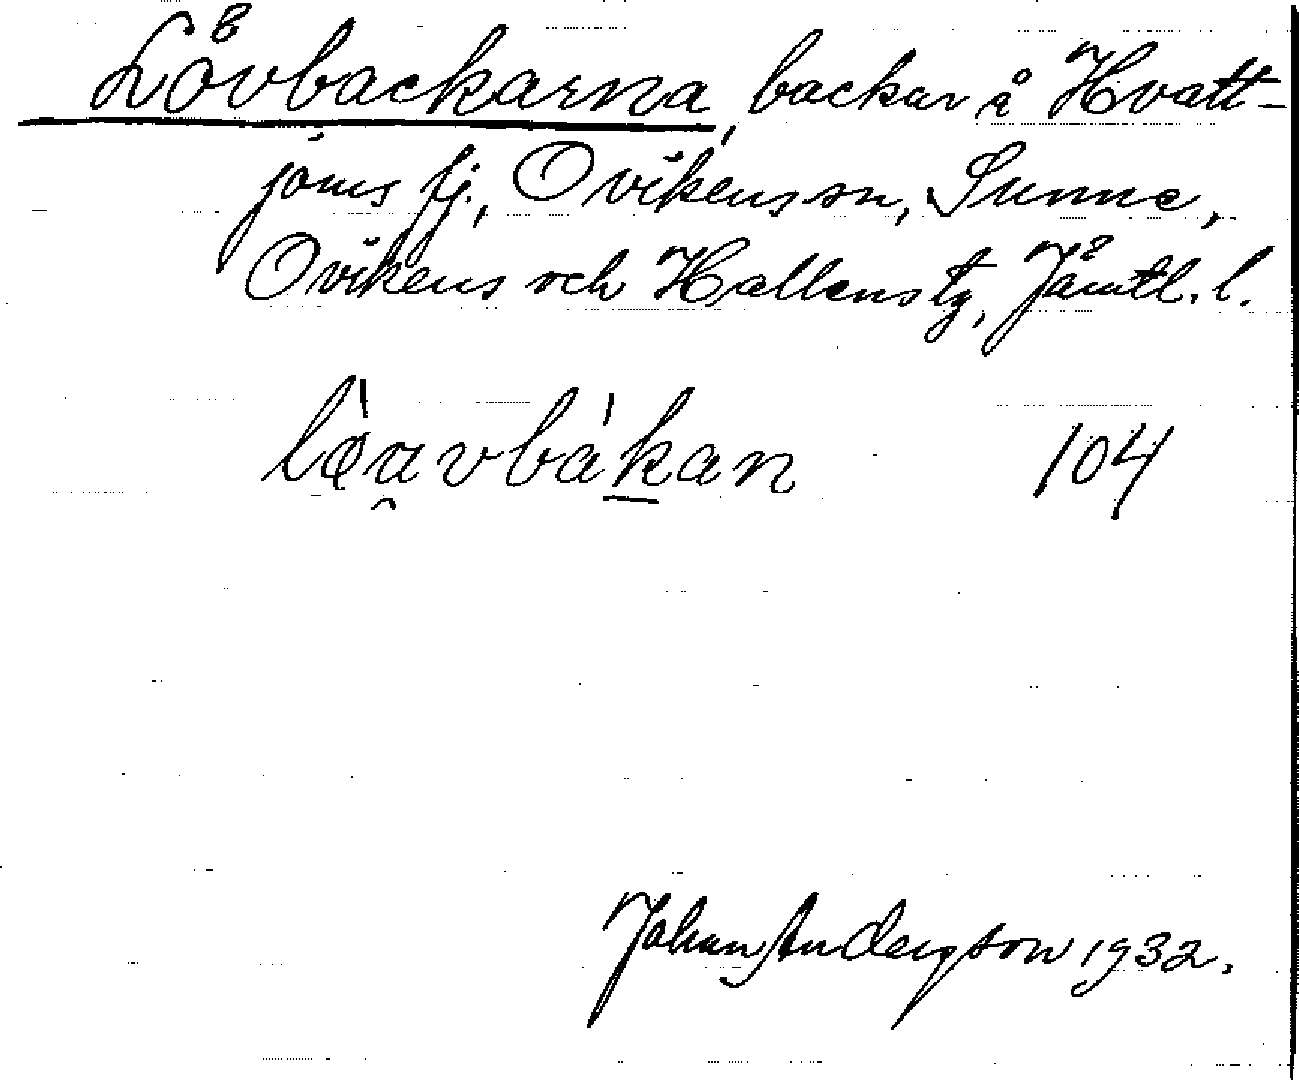 Lövbackarna, backar å Hvatt-
jöms fj., Ovikens sn, Sunne,
Ovikens och Hallens tg, Jämtl. l.
104
Johan Anderson 1932.